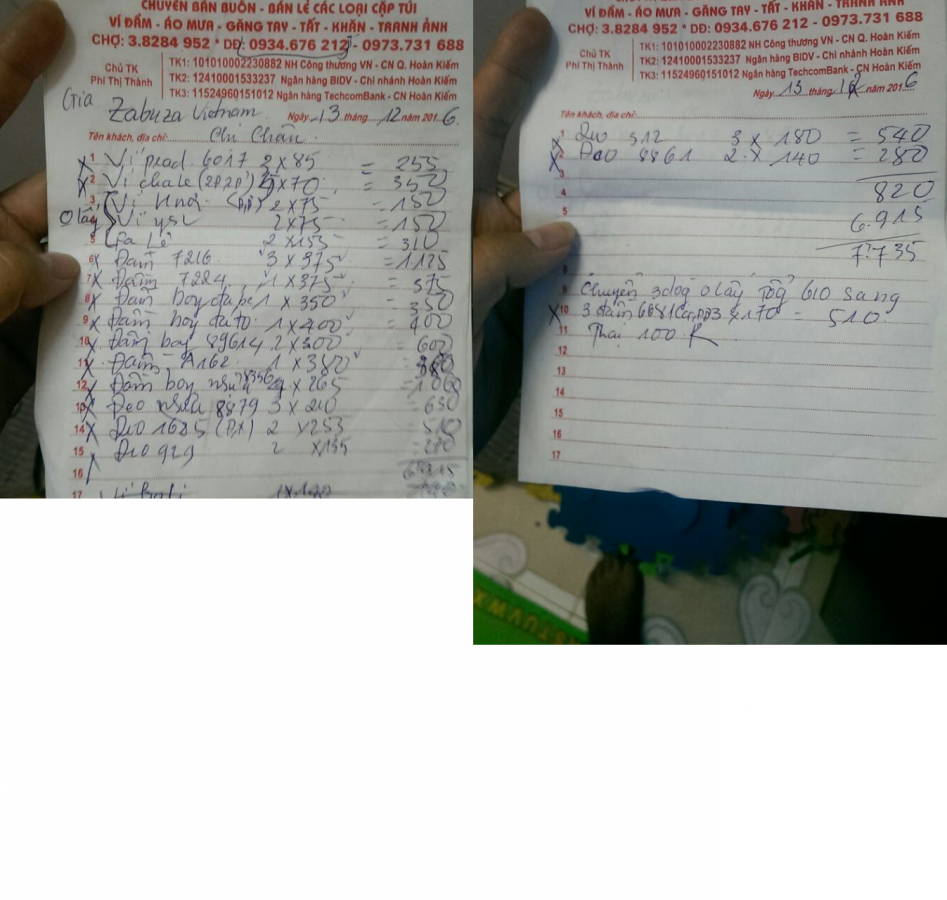 CHUYÊN BÁN BUÔN - BÁN LẺ CÁC LOẠI CẶP TÚI
VÍ ĐẦM - ÁO MƯA - GĂNG TAY - TẤT - KHĂN - TRANH ẢNH
CHỢ: 3.8284 952 * DĐ: 0934.676 212 - 0973.731 688
Chủ TK
Phí Thị Thành
TK1: 101010002230882 NH Công thương VN - CN Q. Hoàn Kiếm
TK2: 12410001533237 Ngân hàng BIDV - Chi nhánh Hoàn Kiếm
TK3: 11524960151012 Ngân hàng TechcomBank - CN Hoàn Kiếm
Gia Zabuza Vietnam
Ngày 13 tháng 12 năm 2016
Tên khách, địa chỉ: Chi Chân
1 Ví prad 6017 2 x 85 = 255
2 Ví chale (2P2P) 5 x 70 = 350
3 Ví (PP) 2 x 75 = 150
o lấy
4 Ví ysl 2 x 75 = 150
5 Pa Lê 2 x 155 = 310
6 Đầm 7216 3 x 375 = 1125
7 Đầm 7224 1 x 375 = 375
8 Đầm boy đá bé 1 x 350 = 350
9 Đầm boy đá to 1 x 400 = 400
10 Đầm boy 89614 2 x 300 = 600
11 Đầm A162 1 x 380
12 Đầm boy nhựa x 265
13 Đeo nhựa 8879 3 x 210 = 630
14 Đeo 1685 (PX) 2 x 253 = 510
15 Đeo 929 2 x 135 = 270
16
17 1 x 120
VÍ ĐẦM - ÁO MƯA - GĂNG TAY - TẤT - KHĂN - TRANH ẢNH
CHỢ: 3.8284 952 * DĐ: 0934.676 212 - 0973.731 688
Chủ TK
Phí Thị Thành
TK1: 101010002230882 NH Công thương VN - CN Q. Hoàn Kiếm
TK2: 12410001533237 Ngân hàng BIDV - Chi nhánh Hoàn Kiếm
TK3: 11524960151012 Ngân hàng TechcomBank - CN Hoàn Kiếm
Ngày 13 tháng 12 năm 2016
Tên khách, địa chỉ:
1 Đeo 512 3 x 180 = 540
2 Đeo 8861 2 x 140 = 280
3
4 820
5 6.915
7.735
8
9 Chuyển 3 dòg o lấy tổg 610 sang
10 3 đầm 6681 3 x 170 = 510
11 Thại 100 K
12
13
14
15
16
17
STUVWX